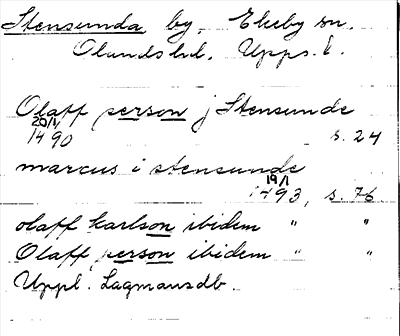 Stensunda by, Ekeby sn.
Olands hd. Upps. l.
Olaff person j Stensunde
20/1
1490 s. 24
marcus i stensunde
19/1
1493, s. 76
olaff karlson ibidem " "
Olaff person ibidem " "
Uppl. Lagmansdb.